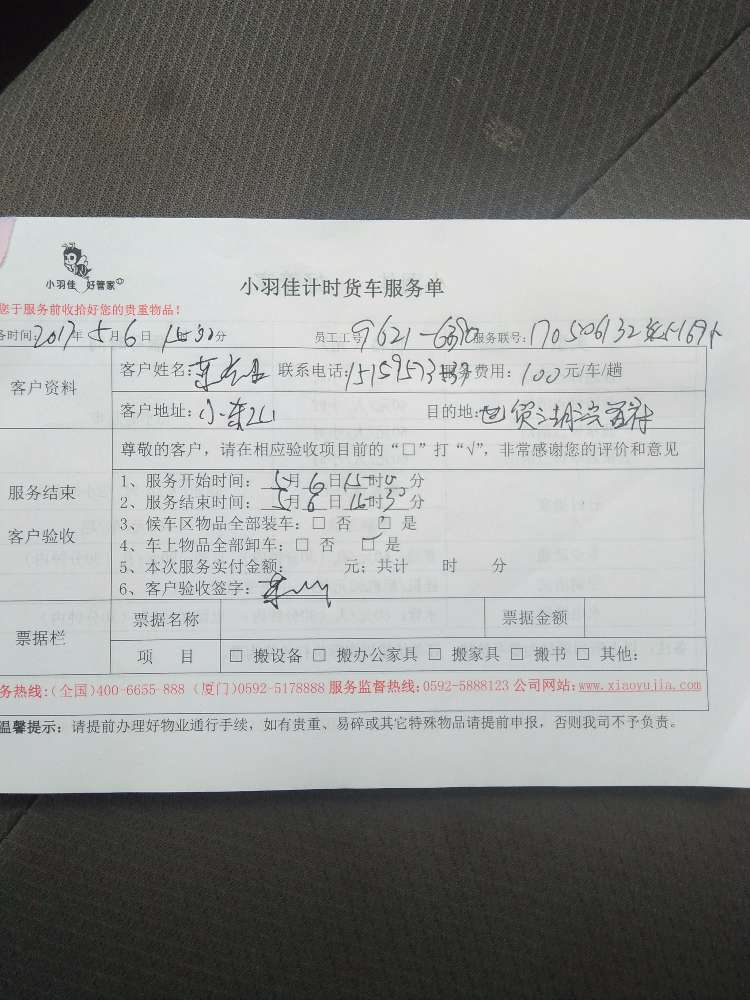 小羽佳 好管家
小羽佳计时货车服务单
您于服务前收拾好您的贵重物品！
务时间：2017年5月6日 时30分 员工工号9621-6390 服务联号：170506132
客户资料
客户姓名： 联系电话： 服务费用：100元/车/趟
客户地址：小东山 目的地：
尊敬的客户，请在相应验收项目前的“□”打“√”，非常感谢您的评价和意见
服务结束
客户验收
1、服务开始时间：5月6日15时0分
2、服务结束时间：5月6日16时30分
3、候车区物品全部装车：□ 否 □ 是
4、车上物品全部卸车：□ 否 □ 是
5、本次服务实付金额： 元；共计 时 分
6、客户验收签字：
票据栏
票据名称 票据金额
项 目 □ 搬设备 □ 搬办公家具 □ 搬家具 □ 搬书 □ 其他：
务热线：（全国）400-6655-888 （厦门）0592-5178888 服务监督热线：0592-5888123 公司网站：www.xiaoyujia.com
温馨提示：请提前办理好物业通行手续，如有贵重、易碎或其它特殊物品请提前申报，否则我司不予负责。